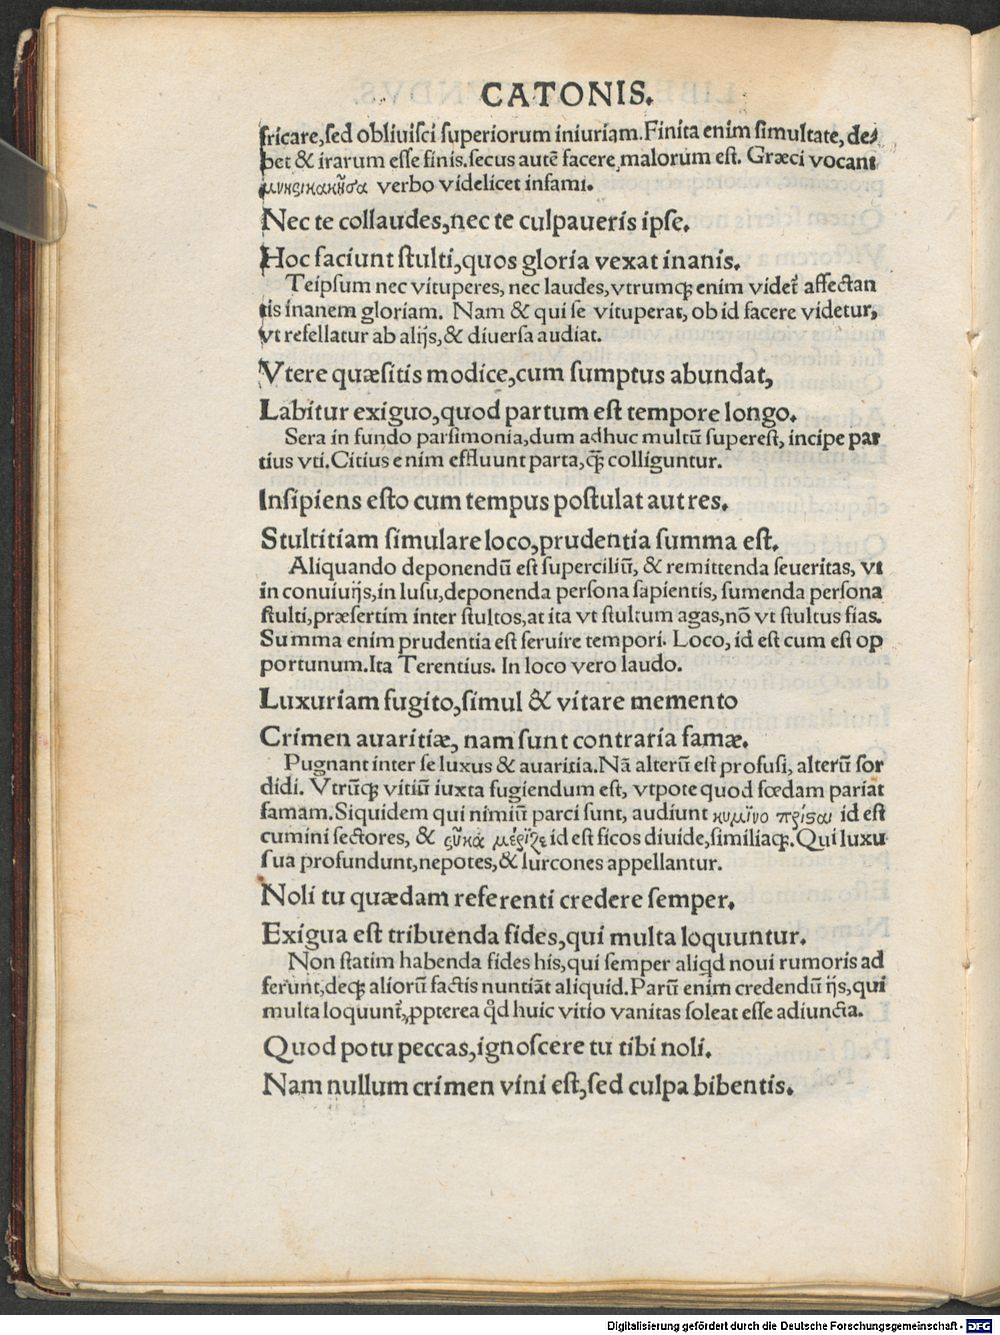 CATONIS.
fricare,sed obliuisci superiorum iniuriam.Finita enim simultate, de⸗
bet & irarum esse finis.secus autē facere malorum est. Græci vocant
μνησικακῆσαι verbo videlicet infami.
Nec te collaudes,nec te culpaueris ipse.
Hoc faciunt stulti,quos gloria vexat inanis.
Teipsum nec vituperes, nec laudes,vtrumqꝫ enim videt᷑ affectan
tis inanem gloriam. Nam & qui se vituperat, ob id facere videtur,
vt refellatur ab alijs,& diuersa audiat.
Vtere quæsitis modice,cum sumptus abundat,
Labitur exiguo,quod partum est tempore longo.
Sera in fundo parsimonia,dum adhuc multū superest, incipe par
tius vti.Citius enim effluunt parta,ꝙ̄ colliguntur.
Insipiens esto cum tempus postulat aut res.
Stultitiam simulare loco,prudentia summa est.
Aliquando deponendū est superciliū, & remittenda seueritas, vt
in conuiuijs,in lusu,deponenda persona sapientis, sumenda persona
stulti,præsertim inter stultos,at ita vt stultum agas,nō vt stultus fias.
Summa enim prudentia est seruire tempori. Loco, id est cum est op
portunum.Ita Terentius. In loco vero laudo.
Luxuriam fugito,simul & vitare memento
Crimen auaritiæ, nam sunt contraria famæ.
Pugnant inter se luxus & auaritia.Nā alterū est profusi, alterū sor
didi. Vtrūqꝫ vitiū iuxta fugiendum est, vtpote quod fœdam pariat
famam.Siquidem qui nimiū parci sunt, audiunt κυμῖνο πρῖσαι id est
cumini sectores, & σῦκα μέριζε id est ficos diuide,similiaqꝫ.Qui luxu
sua profundunt,nepotes,& lurcones appellantur.
Noli tu quædam referenti credere semper.
Exigua est tribuenda fides,qui multa loquuntur.
Non statim habenda fides his,qui semper aliqd noui rumoris ad
ferunt,deqꝫ aliorū factis nuntiāt aliquid.Parū enim credendū ijs,qui
multa loquunt᷑,ꝓpterea qd̓ huic vitio vanitas soleat esse adiuncta.
Quod potu peccas,ignoscere tu tibi noli.
Nam nullum crimen vini est,sed culpa bibentis.
Digitalisierung gefördert durch die Deutsche Forschungsgemeinschaft - DFG